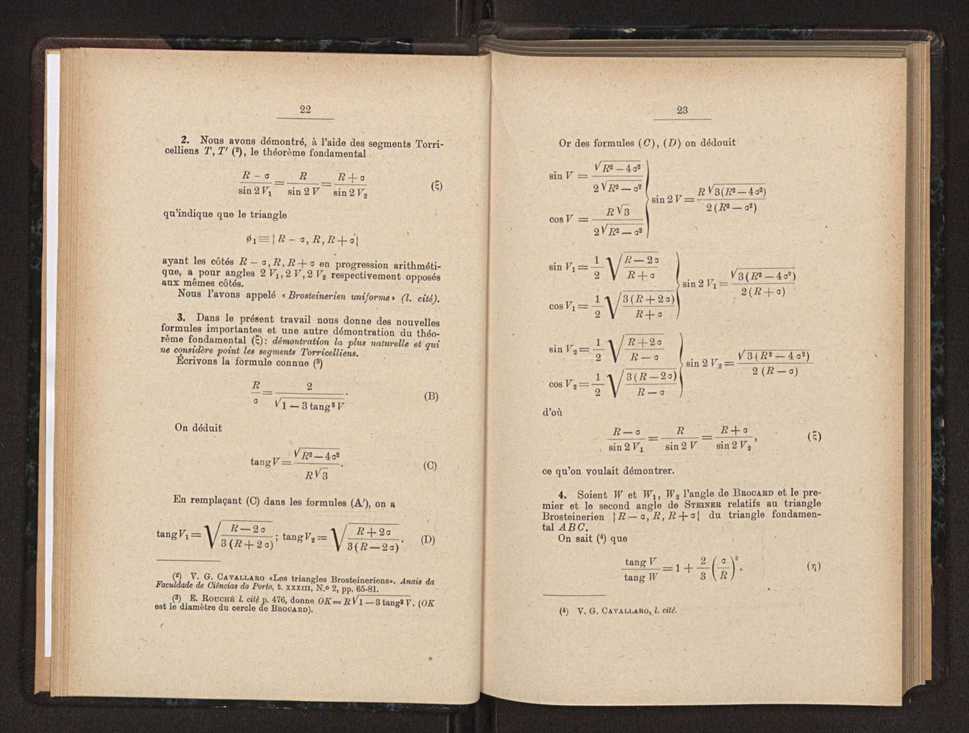 22
2. Nous avons démontré, à l'aide des segments Torri-
celliens T, T' (²), le théorème fondamental
(R − σ)/(sin 2 V₁) = R/(sin 2 V) = (R + σ)/(sin 2 V₂) (ξ)
qu'indique que le triangle
ø₁ ≡ { R − σ, R, R + σ }
ayant les côtés R − σ, R, R + σ en progression arithméti-
que, a pour angles 2 V₁, 2 V, 2 V₂ respectivement opposés
aux mêmes côtés.
Nous l'avons appelé « Brosteinerien uniforme » (l. cité).
3. Dans le présent travail nous donne des nouvelles
formules importantes et une autre démontration du théo-
rème fondamental (ξ): démontration la plus naturelle et qui
ne considère point les segments Torricelliens.
Écrivons la formule connue (³)
R/σ = 2/√(1 − 3 tang² V). (B)
On déduit
tang V = √(R² − 4σ²)/(R√3). (C)
En remplaçant (C) dans les formules (A'), on a
tang V₁ = √((R − 2σ)/(3 (R + 2σ))); tang V₂ = √((R + 2σ)/(3 (R − 2σ))). (D)
(²) V. G. Cavallaro «Les triangles Brosteineriens». Anais da
Faculdade de Ciências do Porto, t. xxxiii, N.º 2, pp. 65-81.
(³) E. Rouché l. cité p. 476, donne OK = R√(1 − 3 tang² V). (OK
est le diamètre du cercle de Brocard).
23
Or des formules (C), (D) on dédouit
sin V = √(R² − 4σ²)/(2√(R² − σ²))
cos V = R√3/(2√(R² − σ²))
sin 2 V = R√(3(R² − 4σ²))/(2 (R² − σ²))
sin V₁ = 1/2 √((R − 2σ)/(R + σ))
cos V₁ = 1/2 √(3 (R + 2σ)/(R + σ))
sin 2 V₁ = √(3 (R² − 4σ²))/(2 (R + σ))
sin V₂ = 1/2 √((R + 2σ)/(R − σ))
cos V₂ = 1/2 √(3 (R − 2σ)/(R − σ))
sin 2 V₂ = √(3 (R² − 4σ²))/(2 (R − σ))
d'où
(R − σ)/(sin 2 V₁) = R/(sin 2 V) = (R + σ)/(sin 2 V₂), (ξ)
ce qu'on voulait démontrer.
4. Soient W et W₁, W₂ l'angle de Brocard et le pre-
mier et le second angle de Steiner relatifs au triangle
Brosteinerien { R − σ, R, R + σ } du triangle fondamen-
tal ABC.
On sait (⁴) que
tang V/tang W = 1 + 2/3 (σ/R)². (η)
(⁴) V. G. Cavallaro, l. cité.